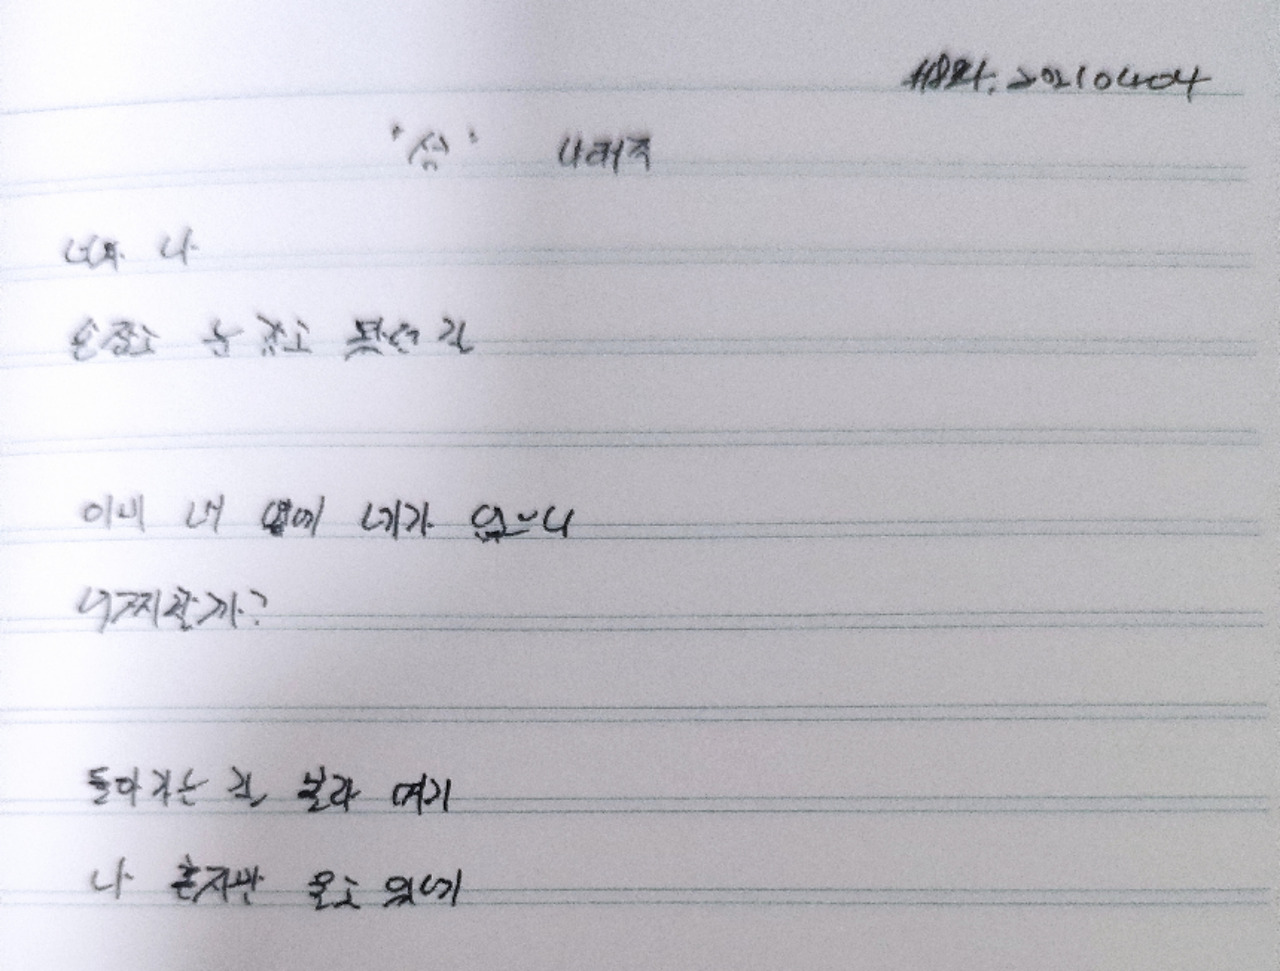 20210404
'섬' 나태주
너와 나
손잡고 눈 감고 왔던 길
이미 내 옆에 네가 없으니
어찌할까?
돌아가는 길 몰라 여기
나 혼자만 울고 있네